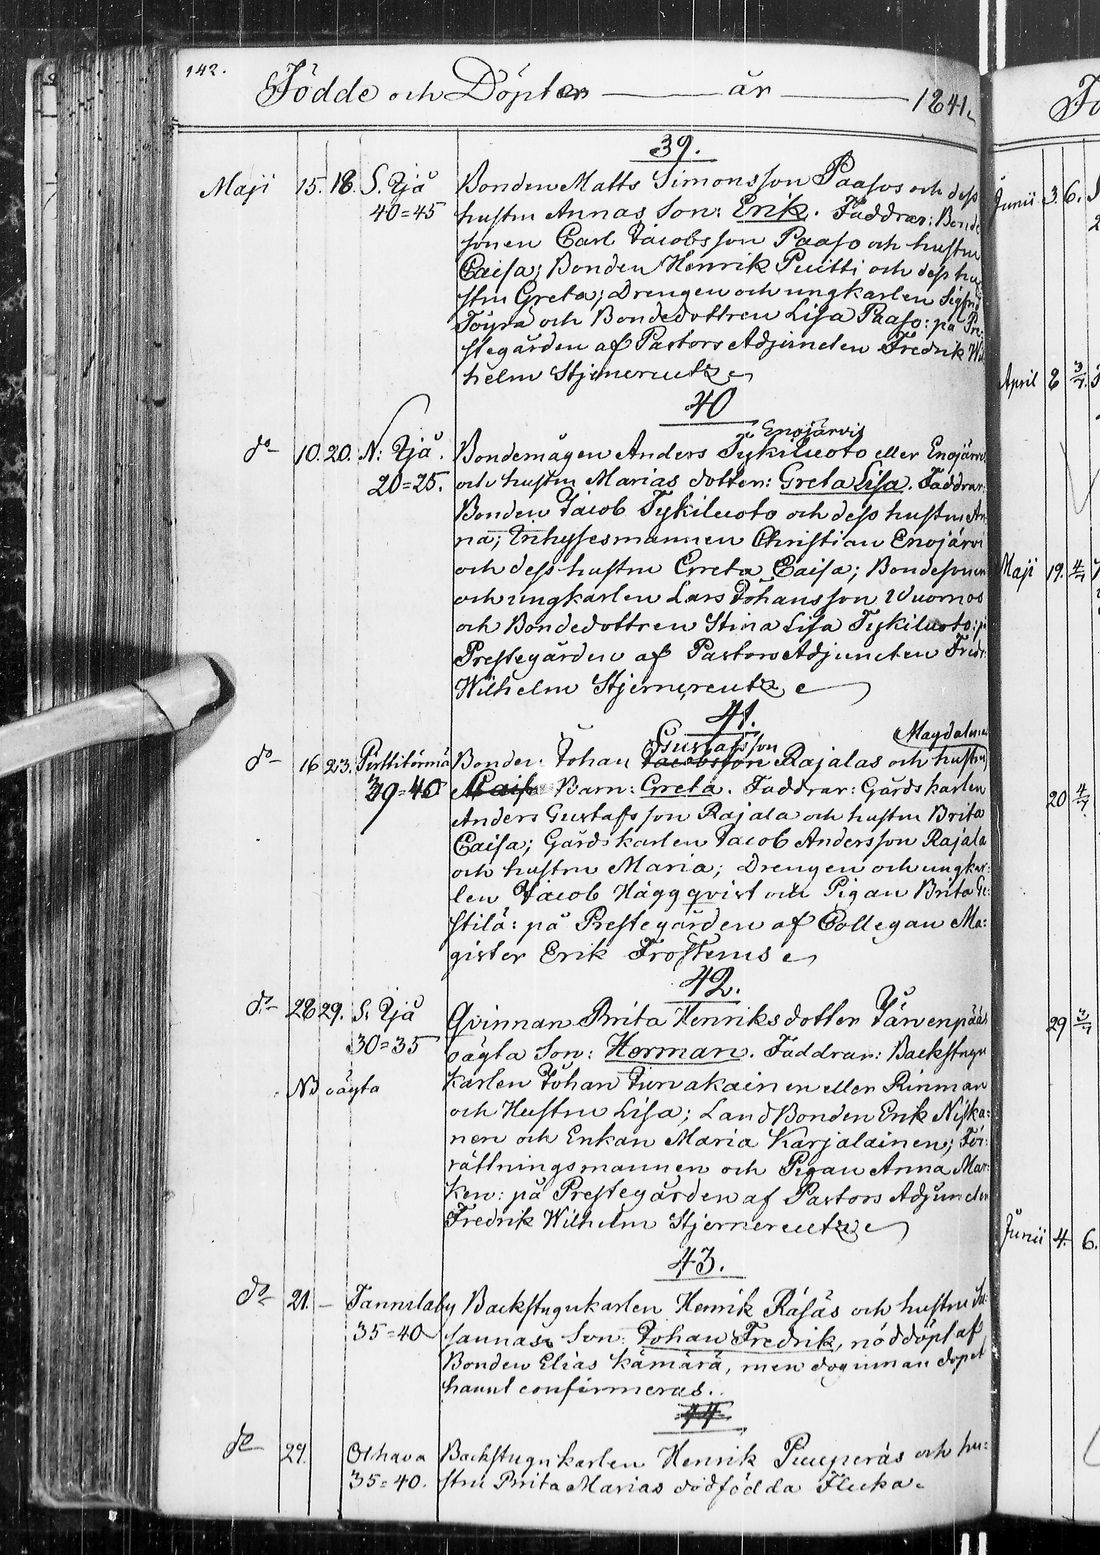 142.
Födde och Döpter år 1841.
39.
Maji 15. 18. S. Ijå Bonden Matts Simonsson Paasos och dess
40=45 hustru Annas Son: Erik. Faddrar: Bonde
sonen Carl Jacobsson Paaso och hustru
Caisa; Bonden Henrik Puitti och dess hu
stru Greta; Drengen och ungkarlen Sigfrid
Töyrä och Bondedottren Lisa Paaso: på Pre
stegården af Pastors Adjuncten Fredrik Wil
helm Stjernereutz
40
Enojärvi
do 10. 20. N: Ijå. Bondemågen Anders Tykiluoto eller Enojärvi
20=25. och hustru Marias dotter: Greta Lisa. Faddrar:
Bonden Jacob Tykiluoto och dess hustru An
na; Inhysesmannen Christian Enojärvi
och dess hustru Greta Caisa; Bondesonen
och ungkarlen Lars Johansson Wuornos
och Bondedottren Stina Lisa Tykiluoto: på
Prestegården af Pastors Adjuncten Fredr.
Wilhelm Stjernereutz
41.
Gustafsson Magdalenas
do 16 23. Pirttitörmä Bonden Johan Jacobsson Rajalas och hustru
39=40 Caisas Barn: Greta. Faddrar: Gårdskarlen
Anders Gustafsson Rajala och hustru Brita
Caisa; Gårdskarlen Jacob Andersson Rajala
och hustru Maria; Drengen och ungkar:
len Jacob Häggqvist och Pigan Brita
stilä: på Prestegården af Collegan Ma:
gister Erik Frosterus
42.
do 28 29. S. Ijå Qvinnan Brita Henriksdotter Järvenpääs
30=35 oägta Son: Herman. Faddrar: Backstugu
NB oägta karlen Johan Turvakainen eller Rinman
och Hustru Lisa; LandBonden Erik Niska:
nen och Enkan Maria Karjalainen; För:
rättningsmannen och Pigan Anna Mar:
ken: på Prestegården af Pastors Adjuncten
Fredrik Wilhelm Stjernereutz
43.
do 21. — Tannilaby Backstugukarlen Henrik Räsäs och hustru Su:
35=40 sannas Son: Johan Fredrik, nöddöpt af
Bonden Elias Kämärä, men dog innan dopet
hunnt confirmeras.
44
do 29. Olhava Backstugukarlen Henrik Puuperäs och hu:
35=40. stru Brita Marias dödfödda Flicka.
Junii 3. 6.
April 8 3/7.
Maji 19. 4/7
20 4/7.
29 3/7
Junii 4. 6.